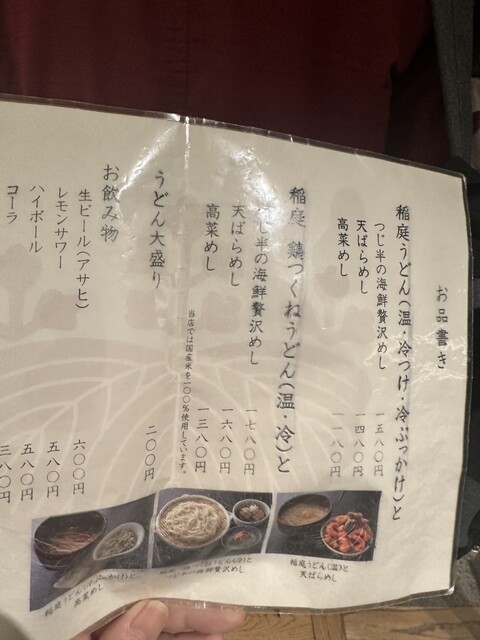 お品書き
稲庭うどん(温・冷つけ・冷ぶっかけ)と
つじ半の海鮮贅沢めし 一五八〇円
天ばらめし 一四八〇円
高菜めし 一一八〇円
稲庭 鶏つくねうどん(温・冷)と
つじ半の海鮮贅沢めし 一七八〇円
天ばらめし 一六八〇円
高菜めし 一三八〇円
当店では国産米を一〇〇%使用しています。
うどん大盛り 二〇〇円
お飲み物
生ビール(アサヒ) 六〇〇円
レモンサワー 五八〇円
ハイボール 五八〇円
コーラ 三八〇円
稲庭うどん(温)と
天ばらめし
海鮮贅沢めし
稲庭うどん(冷ぶっかけ)と
高菜めし